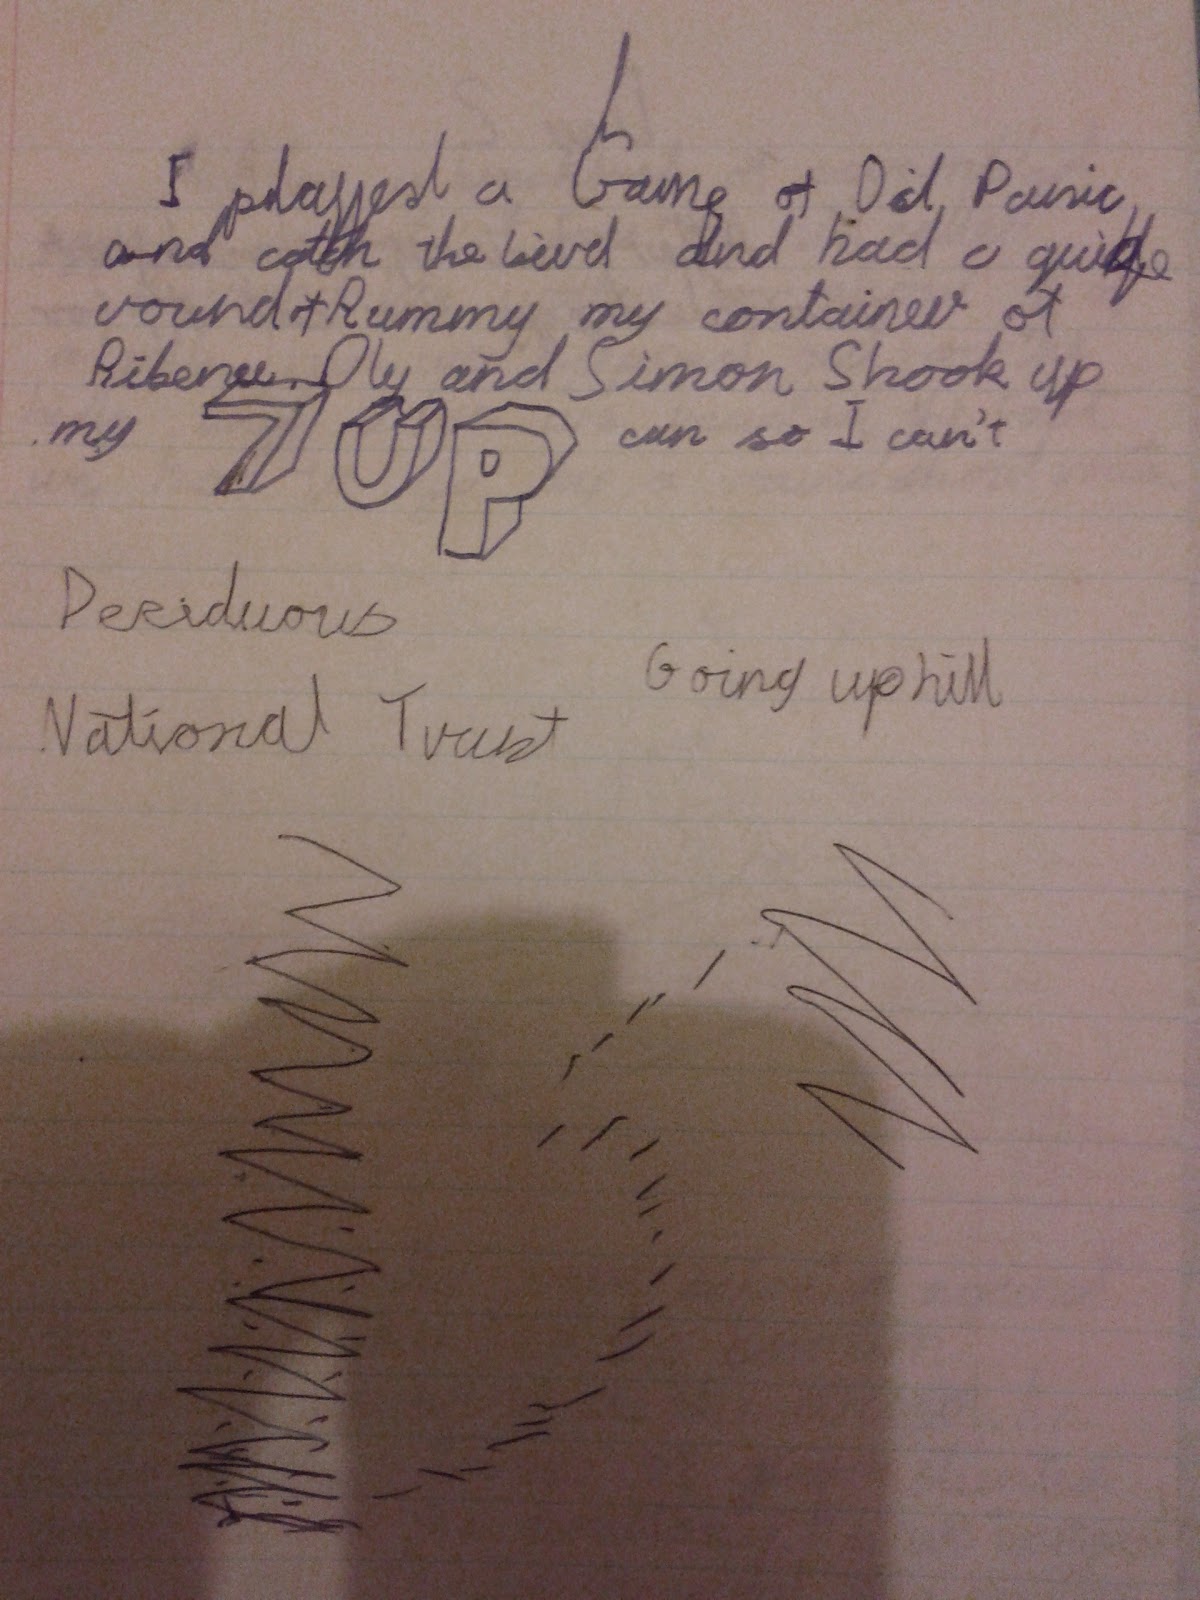 I played a Game of Oil Panic
and catch the bird and had a quick
round of Rummy my container of
Ribena. Oly and Simon Shook up
my 7UP can so I can't
Deciduous
Going uphill
National Trust